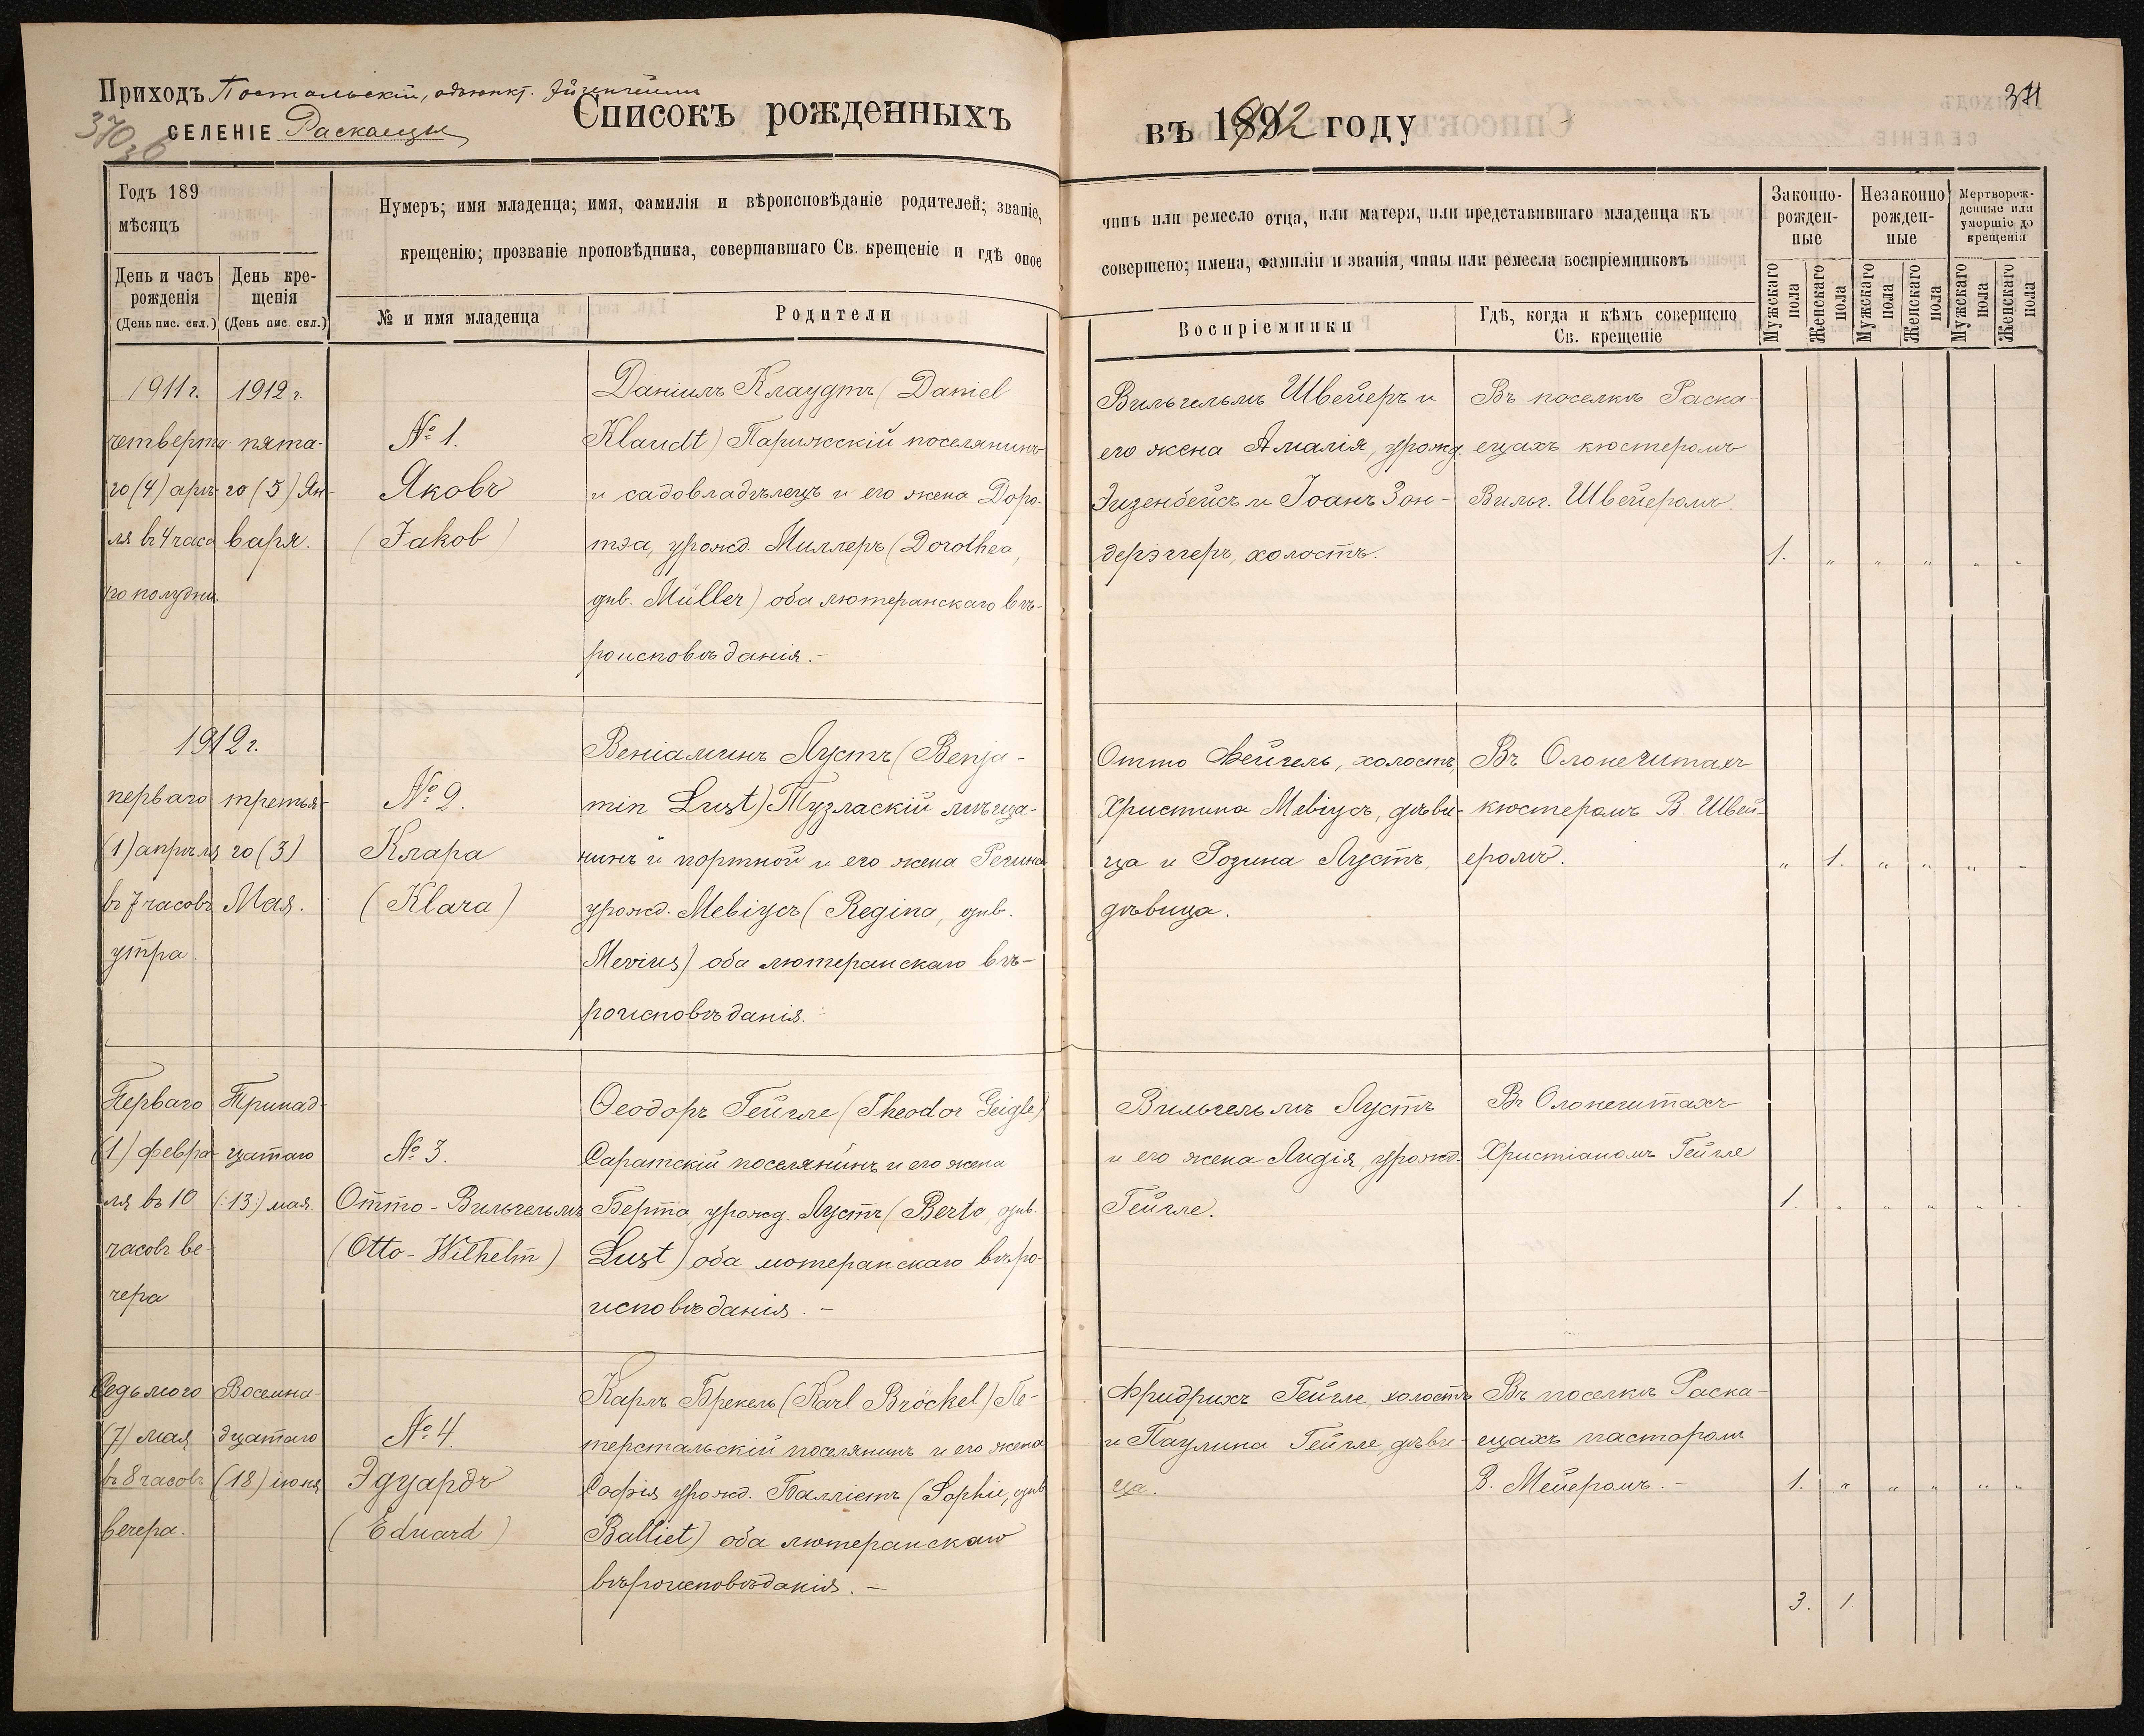 Приходъ Постальскій, адъюнкт. Эйгенгеймъ
СЕЛЕНІЕ Раскаецы
370 об
Списокъ рожденныхъ
въ 1912 году
371
Годъ 189
мѣсяцъ
День и часъ
рожденія
(День пис. скл.)
День кре-
щенія
(День пис. скл.)
Нумеръ; имя младенца; имя, фамилія и вѣроисповѣданіе родителей; званіе,
крещенію; прозваніе проповѣдника, совершавшаго Св. крещеніе и гдѣ оное
№ и имя младенца
Родители
чинъ или ремесло отца, или матери, или представившаго младенца къ
совершено; имена, фамиліи и званія, чины или ремесла воспріемниковъ
Воспріемники
Гдѣ, когда и кѣмъ совершено
Св. крещеніе
Законно-
рожден-
ные
Незаконно
рожден-
ные
Мертворож-
денные или
умершіе до
крещенія
Мужскаго пола
Женскаго пола
Мужскаго пола
Женскаго пола
Мужскаго пола
Женскаго пола
1911 г.
четверта-
го (4) апрѣ-
ля въ 4 часа
по полудни.
1912 г.
пята-
го (5) Ян-
варя.
№ 1.
Яковъ
(Jakob)
Даніилъ Клаудтъ (Daniel
Klaudt) Парижскій поселянинъ
и садовладѣлецъ и его жена Доро-
тэа, урожд. Миллеръ (Dorothea,
gnb. Müller) оба лютеранскаго вѣ-
роисповѣданія.-
Вильгельмъ Швейеръ и
его жена Амалія, урожд.
Эизенбейсъ и Іоанъ Зон-
дерэггеръ, холостъ.
Въ поселкѣ Раска-
ецахъ кюстеромъ
Вильг. Швейеромъ.
1. " " " " "
1912 г.
перваго
(1) апрѣля
въ 7 часовъ
утра.
третья-
го (3)
Мая.
№ 2.
Клара
(Klara)
Веніаминъ Лустъ (Benja-
min Lust) Тузласкій мѣща-
нинъ и портной и его жена Регина
урожд. Мевіусъ (Regina, gnb.
Mevius) оба лютеранскаго вѣ-
роисповѣданія.
Отто Фейгель, холостъ,
Христина Мевіусъ, дѣви-
ца и Розина Лустъ,
дѣвица.
Въ Олонешитахъ
кюстеромъ В. Швей-
еромъ.
" 1. " " " "
Перваго
(1) февра-
ля въ 10
часовъ ве-
чера
Тринад-
цатаго
(:13:) мая.
№ 3.
Отто-Вильгельмъ
(Otto-Wilhelm)
Ѳеодоръ Гейгле (Theodor Geigle)
Саратскій поселянинъ и его жена
Берта, урожд. Лустъ (Berta, gnb.
Lust) оба лютеранскаго вѣро-
исповѣданія. -
Вильгельмъ Лустъ
и его жена Лидія, урожд.
Гейгле.
Въ Олонешитахъ
Христіаномъ Гейгле
1. " " " " "
Седьмого
(7) мая
въ 8 часовъ
вечера.
Восемна-
дцатаго
(18) іюня
№ 4.
Эдуардъ
(Eduard)
Карлъ Брекель (Karl Bröckel) Пе-
терстальскій поселянинъ и его жена
Софія урожд. Балліетъ (Sophie, gnb
Balliet) оба лютеранскаго
вѣроисповѣданія. -
Фридрихъ Гейгле, холостъ
и Паулина Гейгле, дѣви-
ца.
Въ поселкѣ Раска-
ецахъ пасторомъ
В. Мейеромъ. -
1. " " " " "
3. 1